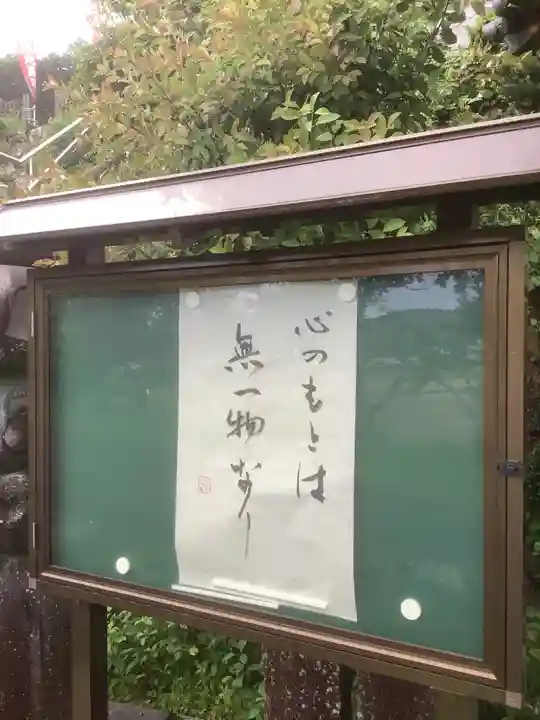 心のもとは
無一物なり